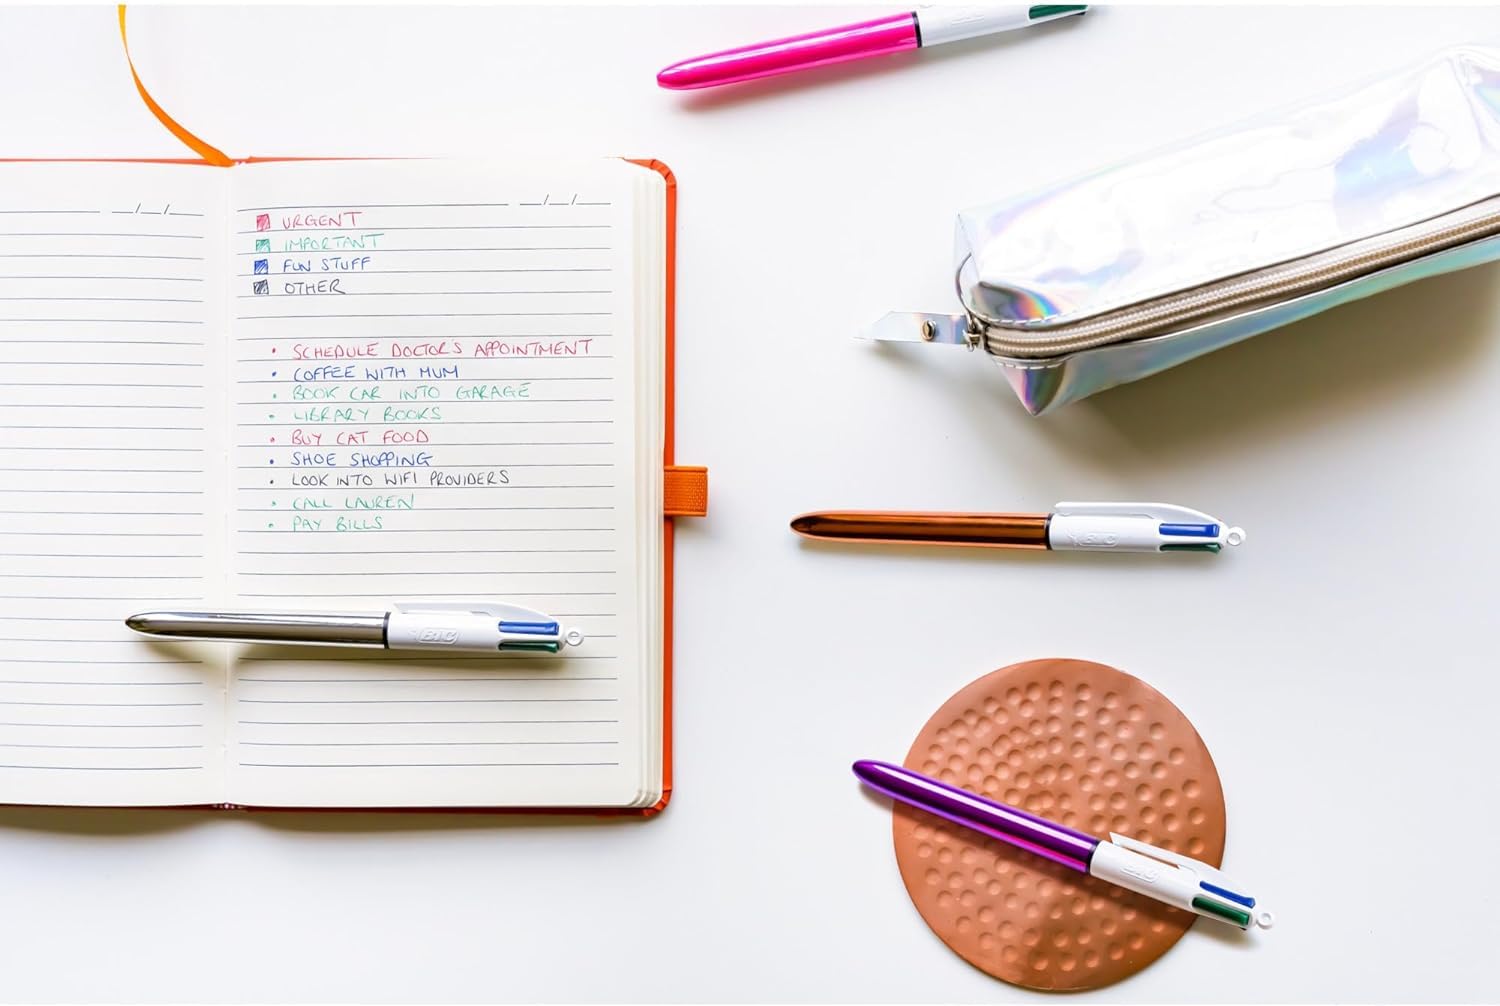 __/__/__
__/__/__
URGENT
IMPORTANT
FUN STUFF
OTHER
• SCHEDULE DOCTOR'S APPOINTMENT
• COFFEE WITH MUM
• BOOK CAR INTO GARAGE
• LIBRARY BOOKS
• BUY CAT FOOD
• SHOE SHOPPING
• LOOK INTO WIFI PROVIDERS
• CALL LAUREN
• PAY BILLS
BIC
BIC
BIC
BIC